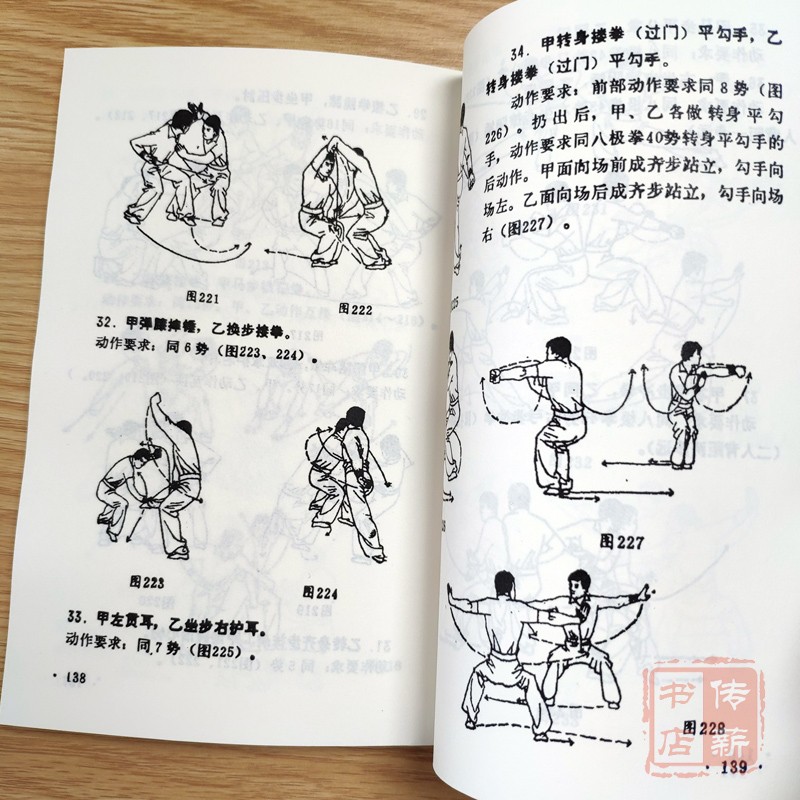 图221
图222
32．甲弹膝摔锤，乙换步接拳。
动作要求：同6势（图223、224）。
图223
图224
33．甲左贯耳，乙坐步右护耳。
动作要求：同7势（图225）。
·138
34．甲转身搂拳（过门）平勾手，乙
转身搂拳（过门）平勾手。
动作要求：前部动作要求同8势（图
226）。扔出后，甲、乙各做转身平勾
手，动作要求同八极拳40势转身平勾手的
后动作。甲面向场前成齐步站立，勾手向
场左。乙面向场后成齐步站立，勾手向场
右（图227）。
图227
图228
·139
传薪
书店